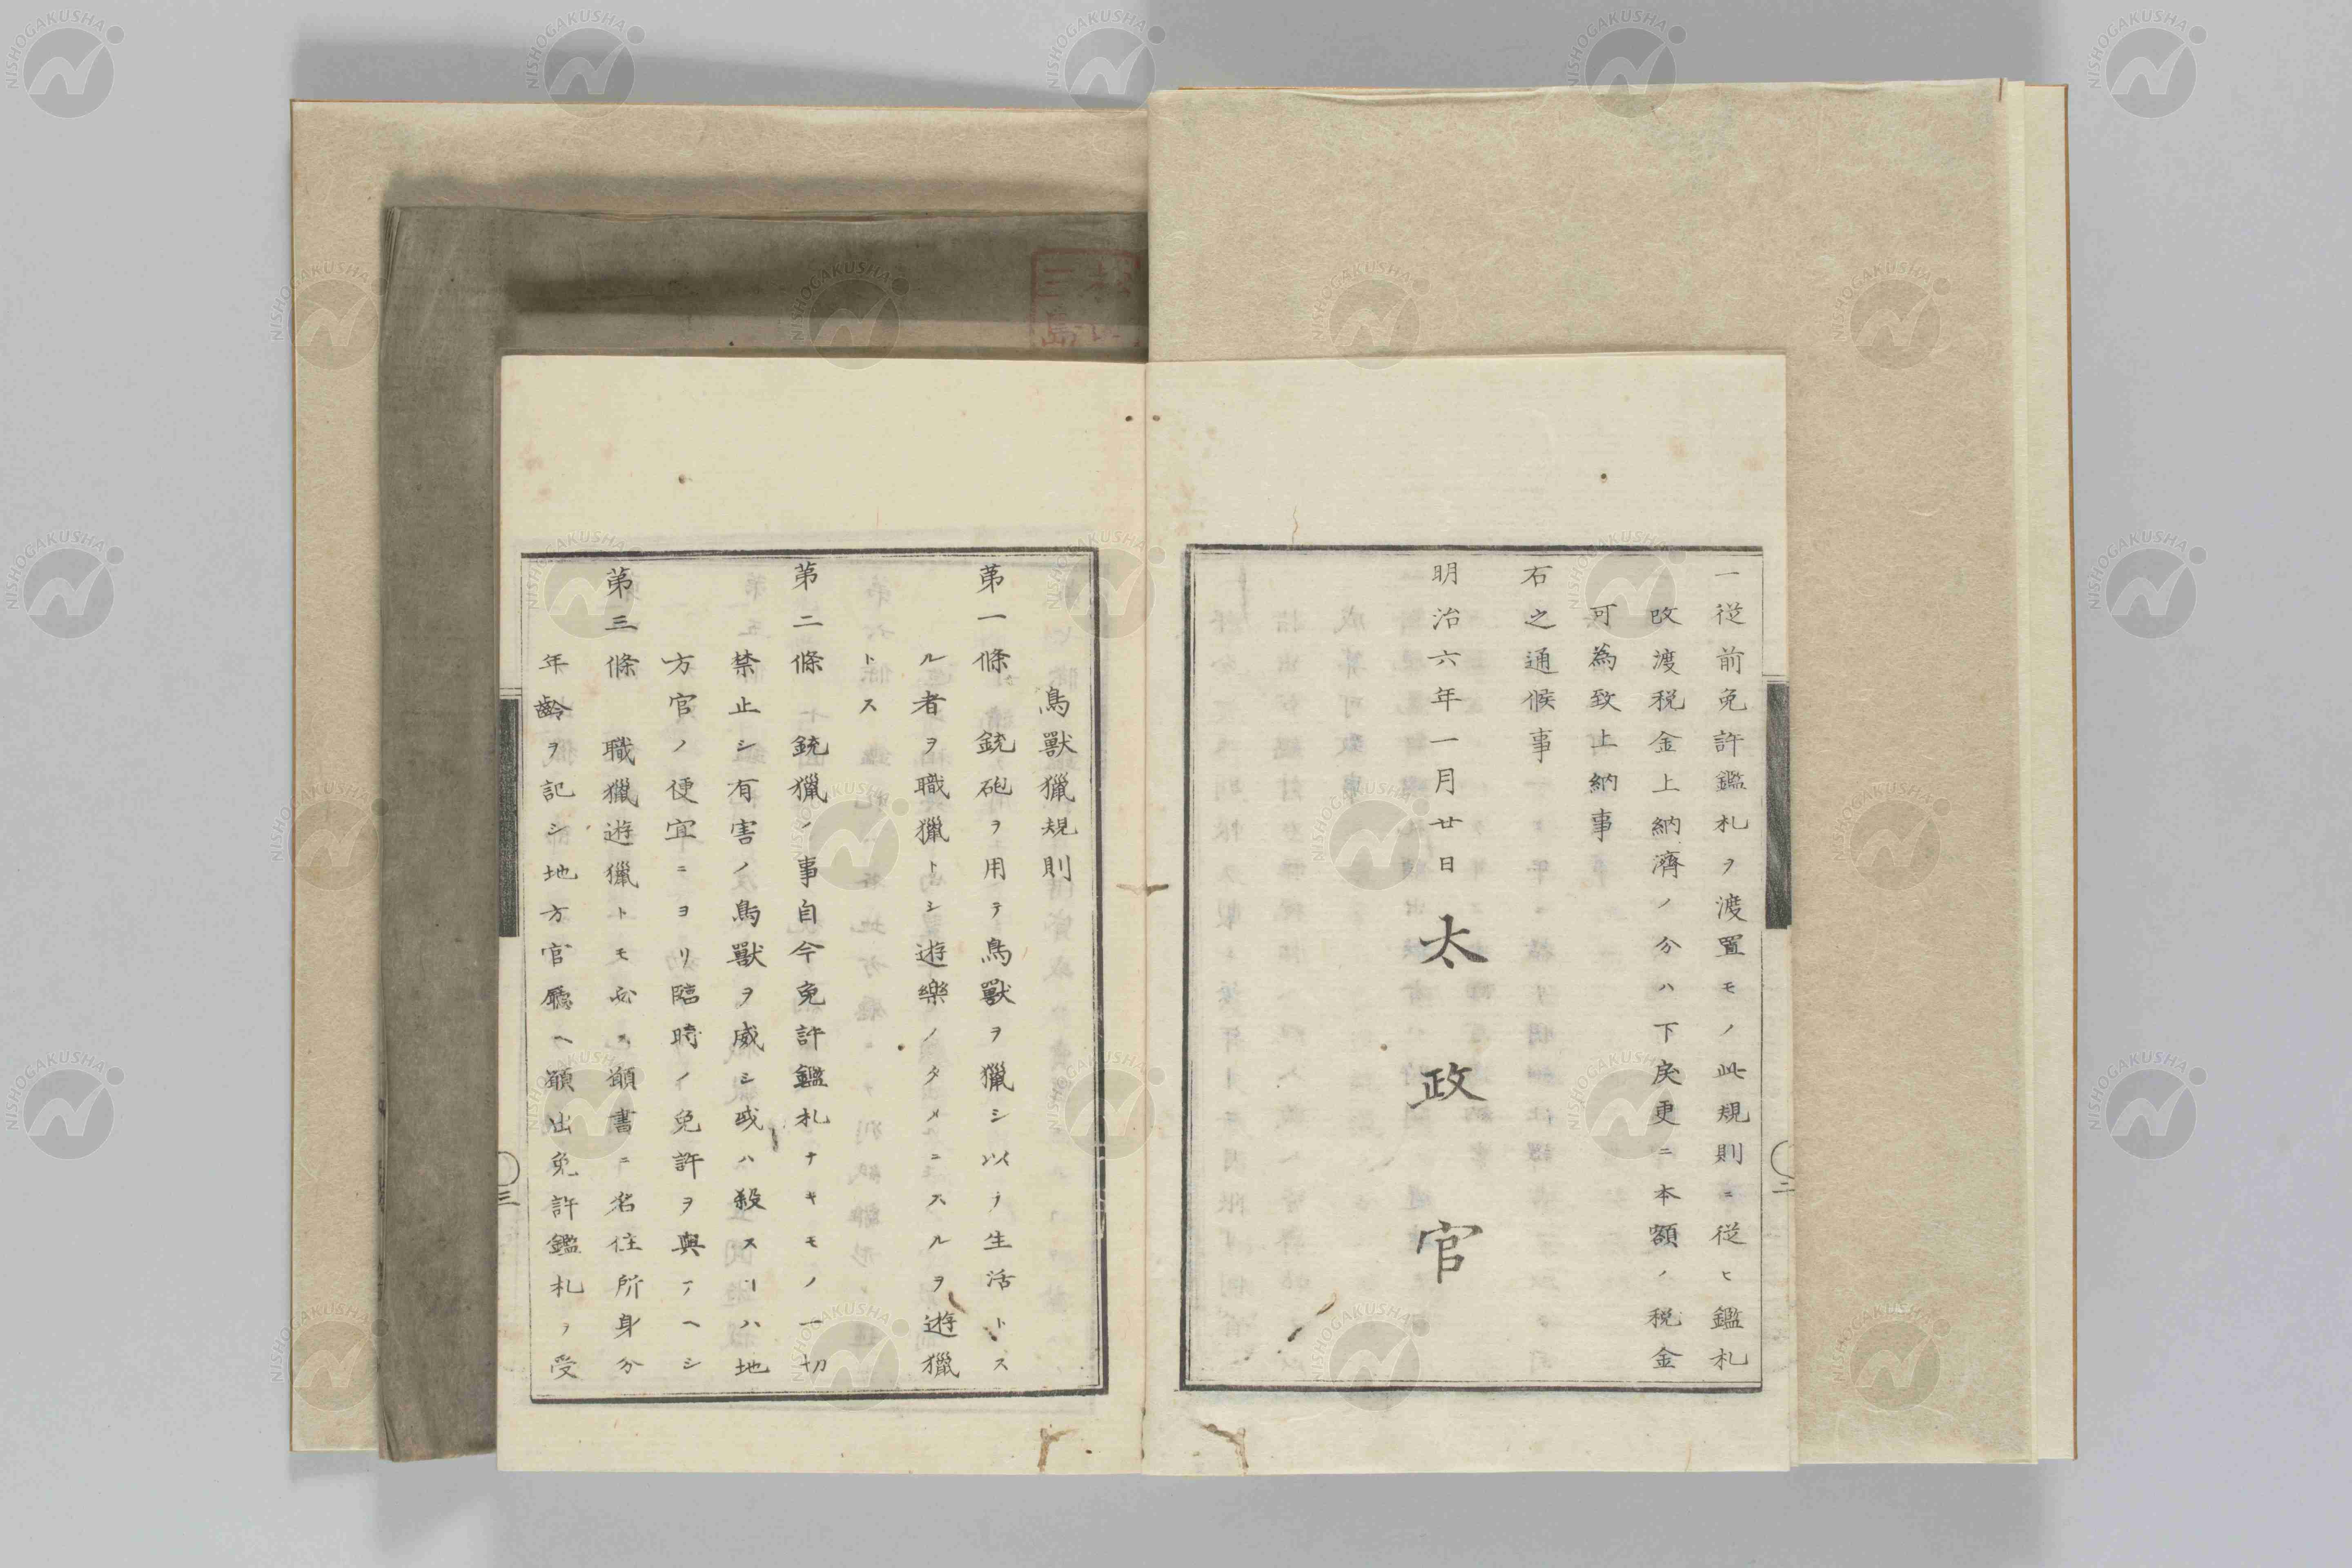 一従前免許鑑札ヲ渡置モノ此規則ニ従ヒ鑑札
改渡税金上納濟ノ分ハ下戻更ニ本額ノ税金
可為致上納事
右之通候事
明治六年一月廿日 太政官
二
鳥獸獵規則
第一條 銃砲ヲ用テ鳥獸ヲ獵シ以テ生活トス
ル者ヲ職獵トシ遊樂ノタメニスルヲ遊獵
トス
第二條 銃獵ノ事自今免許鑑札ナキモノ一切
禁止シ有害ノ鳥獸ヲ威シ或ハ殺スハ地
方官ノ便宜ニヨリ臨時ノ免許ヲ與フヘシ
第三條 職獵遊獵トモ必ス願書ニ名住所身分
年齡ヲ記シ地方官廳ヘ願出免許鑑札ヲ受
三
NISHOGAKUSHA